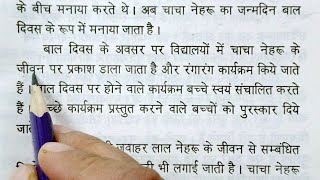 के बीच मनाया करते थे। अब चाचा नेहरू का जन्मदिन बाल
दिवस के रूप में मनाया जाता है।
बाल दिवस के अवसर पर विद्यालयों में चाचा नेहरू के
जीवन पर प्रकाश डाला जाता है और रंगारंग कार्यक्रम किये जाते
हैं। बाल दिवस पर होने वाले कार्यक्रम बच्चे स्वयं संचालित करते
हैं कार्यक्रम प्रस्तुत करने वाले बच्चों को पुरस्कार दिये
जवाहर लाल नेहरू के जीवन से सम्बंधित
भी लगाई जाती है। चाचा नेहरू